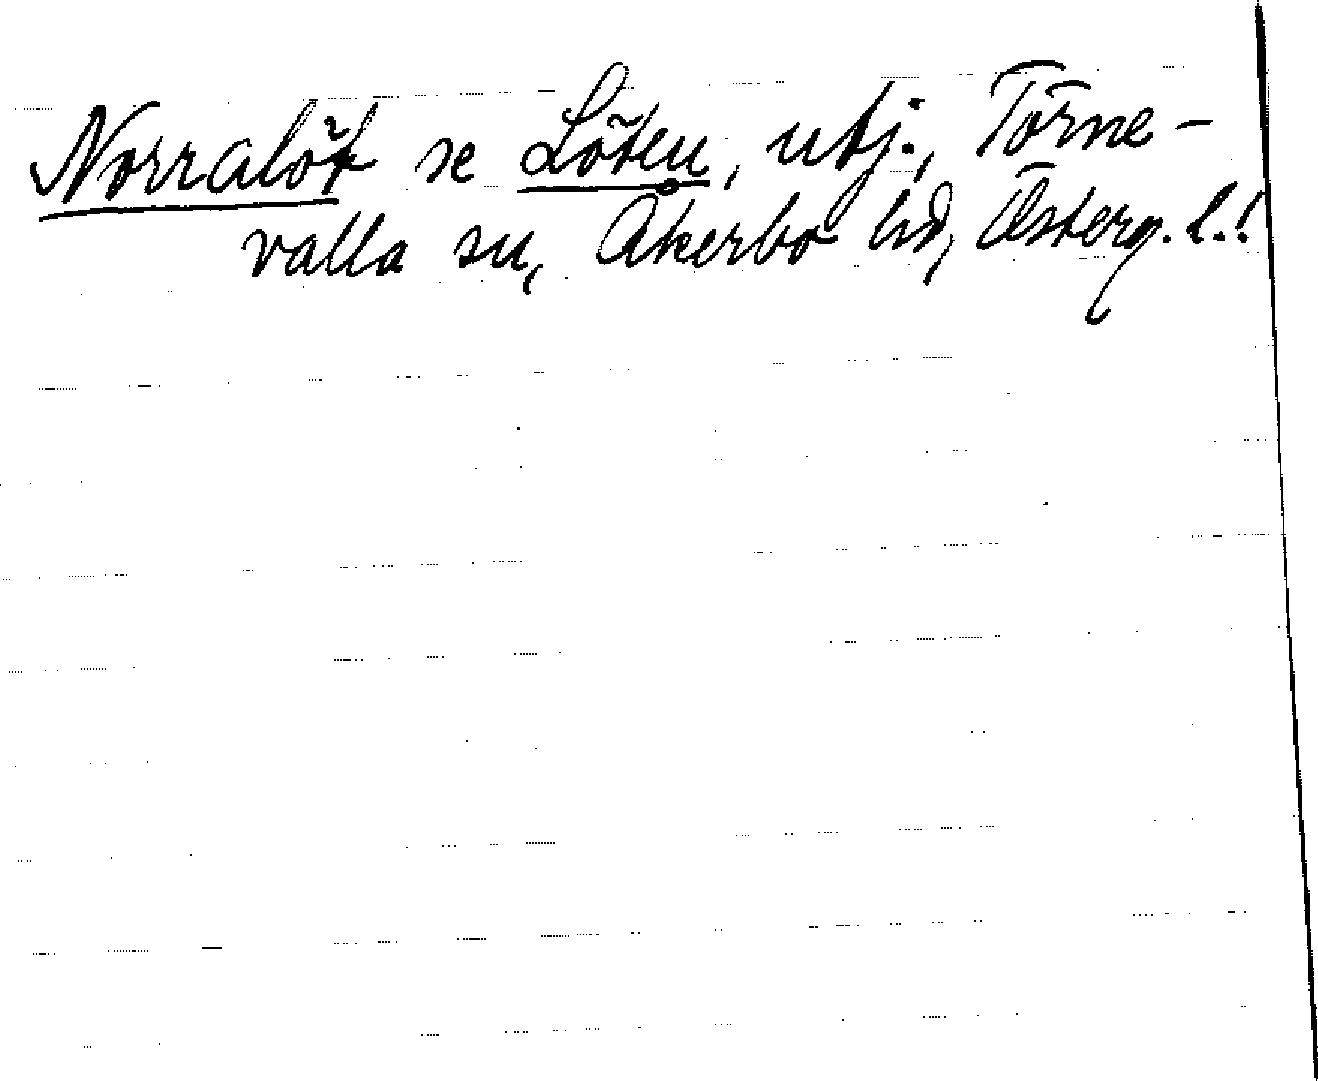 Norralöt se Löten, utj., Törne-
valla sn, Åkerbo hd, Österg. l.!